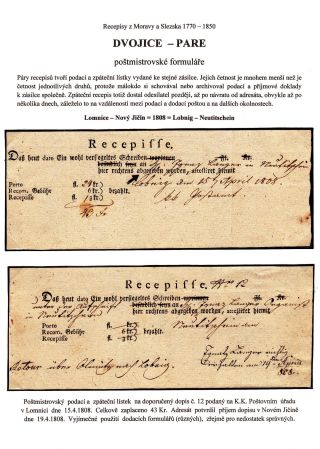 Recepisy z Moravy a Slezska 1770 – 1850
DVOJICE – PARE
poštmistrovské formuláře
Páry recepisů tvoří podací a zpáteční lístky vydané ke stejné zásilce. Jejich četnost je mnohem menší než je
četnost jednotlivých druhů, protože málokdo si schovával nebo archivoval podací a příjmové doklady
k zásilce společně. Zpáteční recepis totiž dostal odesílatel později, až po návratu od adresáta, obvykle až po
několika dnech, záleželo to na vzdálenosti mezi podací a dodací poštou a na dalších okolnostech.
Lomnice – Nový Jičín = 1808 = Lobnig – Neutitschein
Recepisse.
Daß heut dato Ein wohl versegeltes Schreiben
an Ignaz Langer in Neutitschein
hier rechtens abgegeben worden, attestiret hiermit
Porto
Recom. Gebühr
Recepisse
bezahlt.
Lobnig den 15 April 1808.
Recepisse. Nro 12
Daß heut dato Ein wohl versegeltes Schreiben
an Ignaz Langer
hier rechtens abgegeben worden, attestiret hiermit
Porto
Recom. Gebühr
Recepisse
bezahlt.
Neutitschein den
Ignatz Langer
Retour über Olmütz nach Lobnig.
Poštmistrovský podací a zpáteční lístek na doporučený dopis č. 12 podaný na K.K. Poštovním úřadu
v Lomnici dne 15.4.1808. Celkově zaplaceno 43 Kr. Adresát potvrdil příjem dopisu v Novém Jičíně
dne 19.4.1808. Výjimečné použití dodacích formulářů (různých), zřejmě pro nedostatek správných.